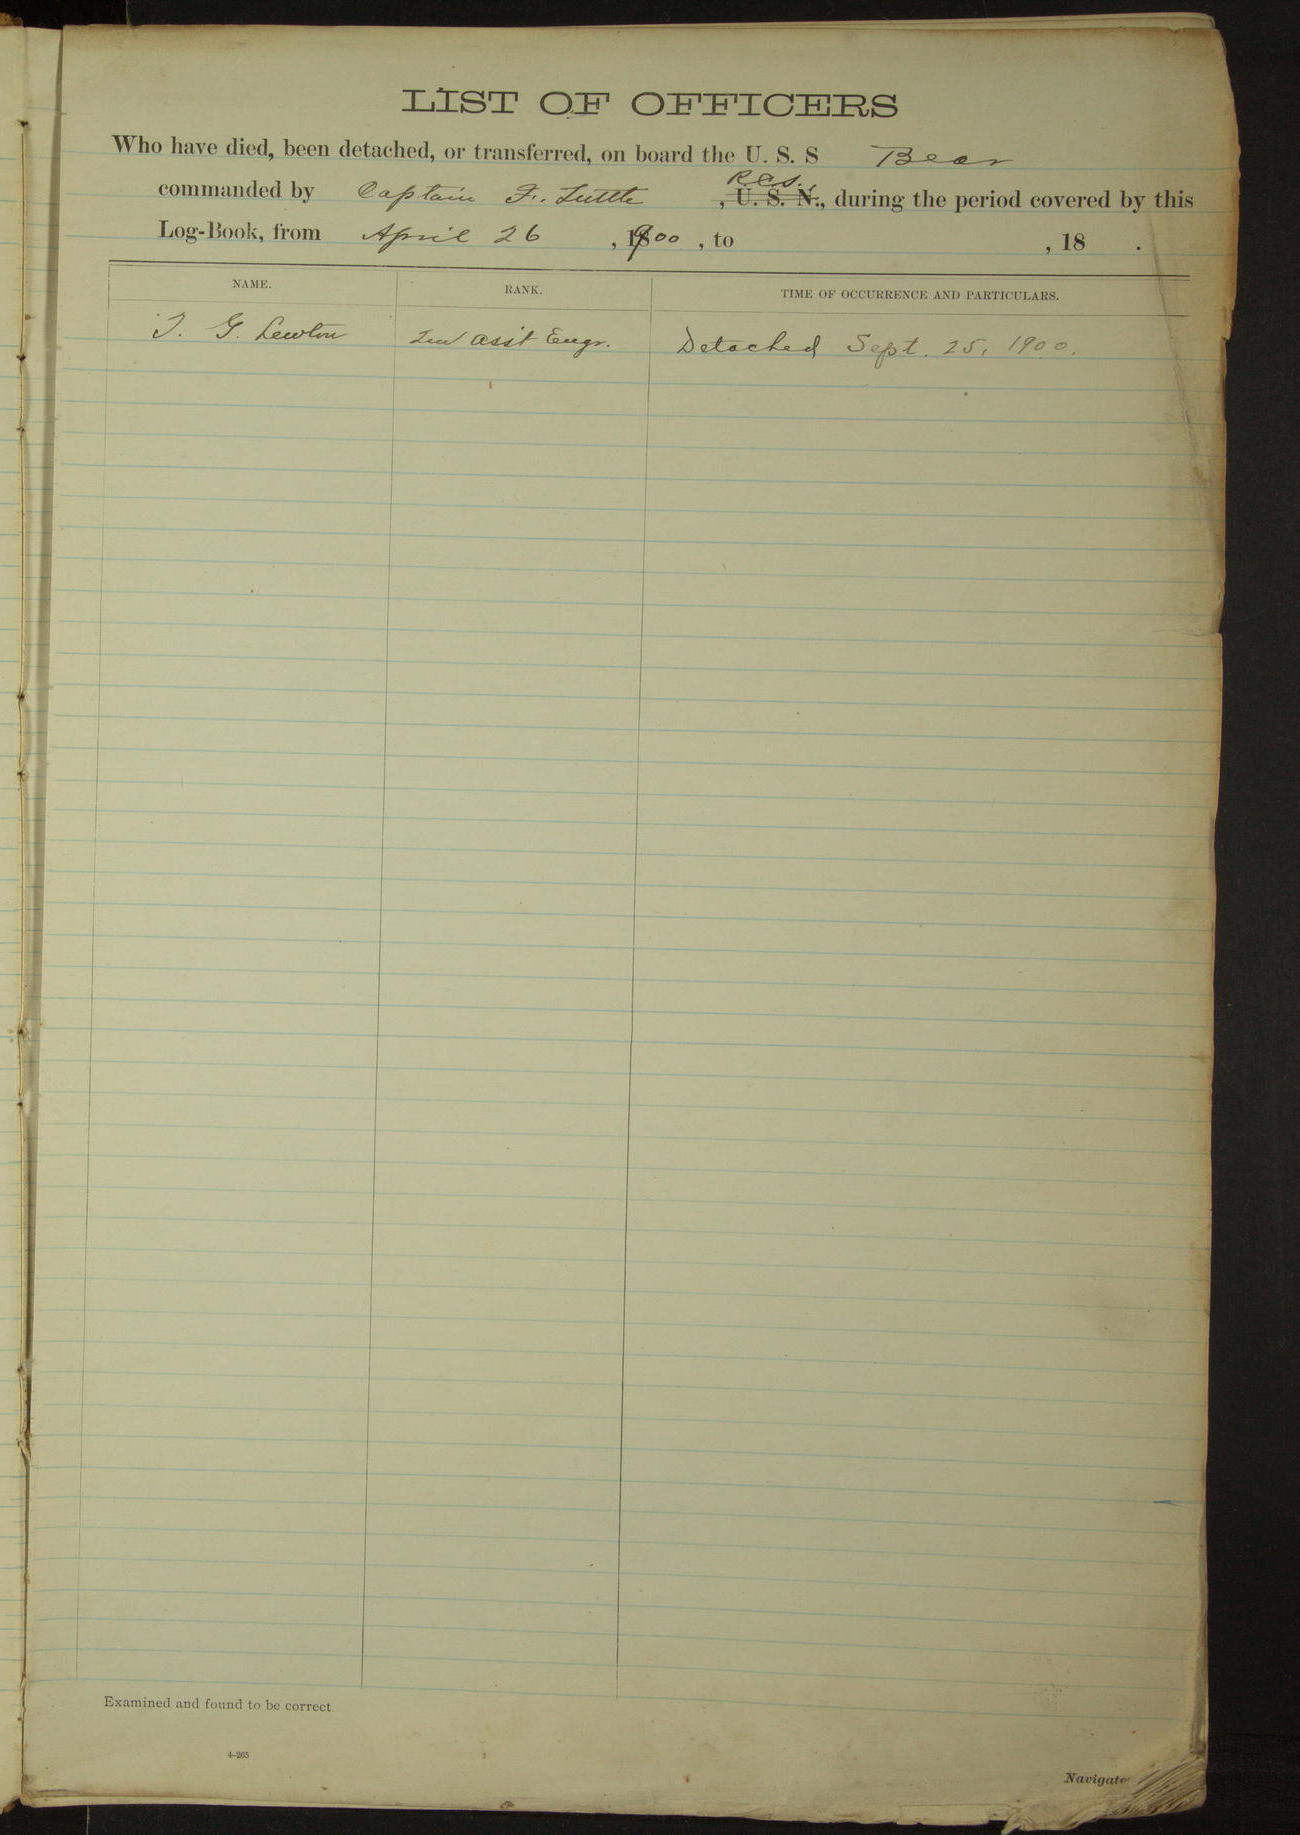 LIST OF OFFICERS
Who have died, been detached, or transferred, on board the U. S. S Bear
R.C.S.,
commanded by Captain F. Tuttle , U. S. N., during the period covered by this
Log-Book, from April 26 , 1900 , to , 18 .
NAME. RANK. TIME OF OCCURRENCE AND PARTICULARS.
T. G. Lewton 2nd Asst Engr. Detached Sept. 25, 1900.
Examined and found to be correct.
4-265
Navigato